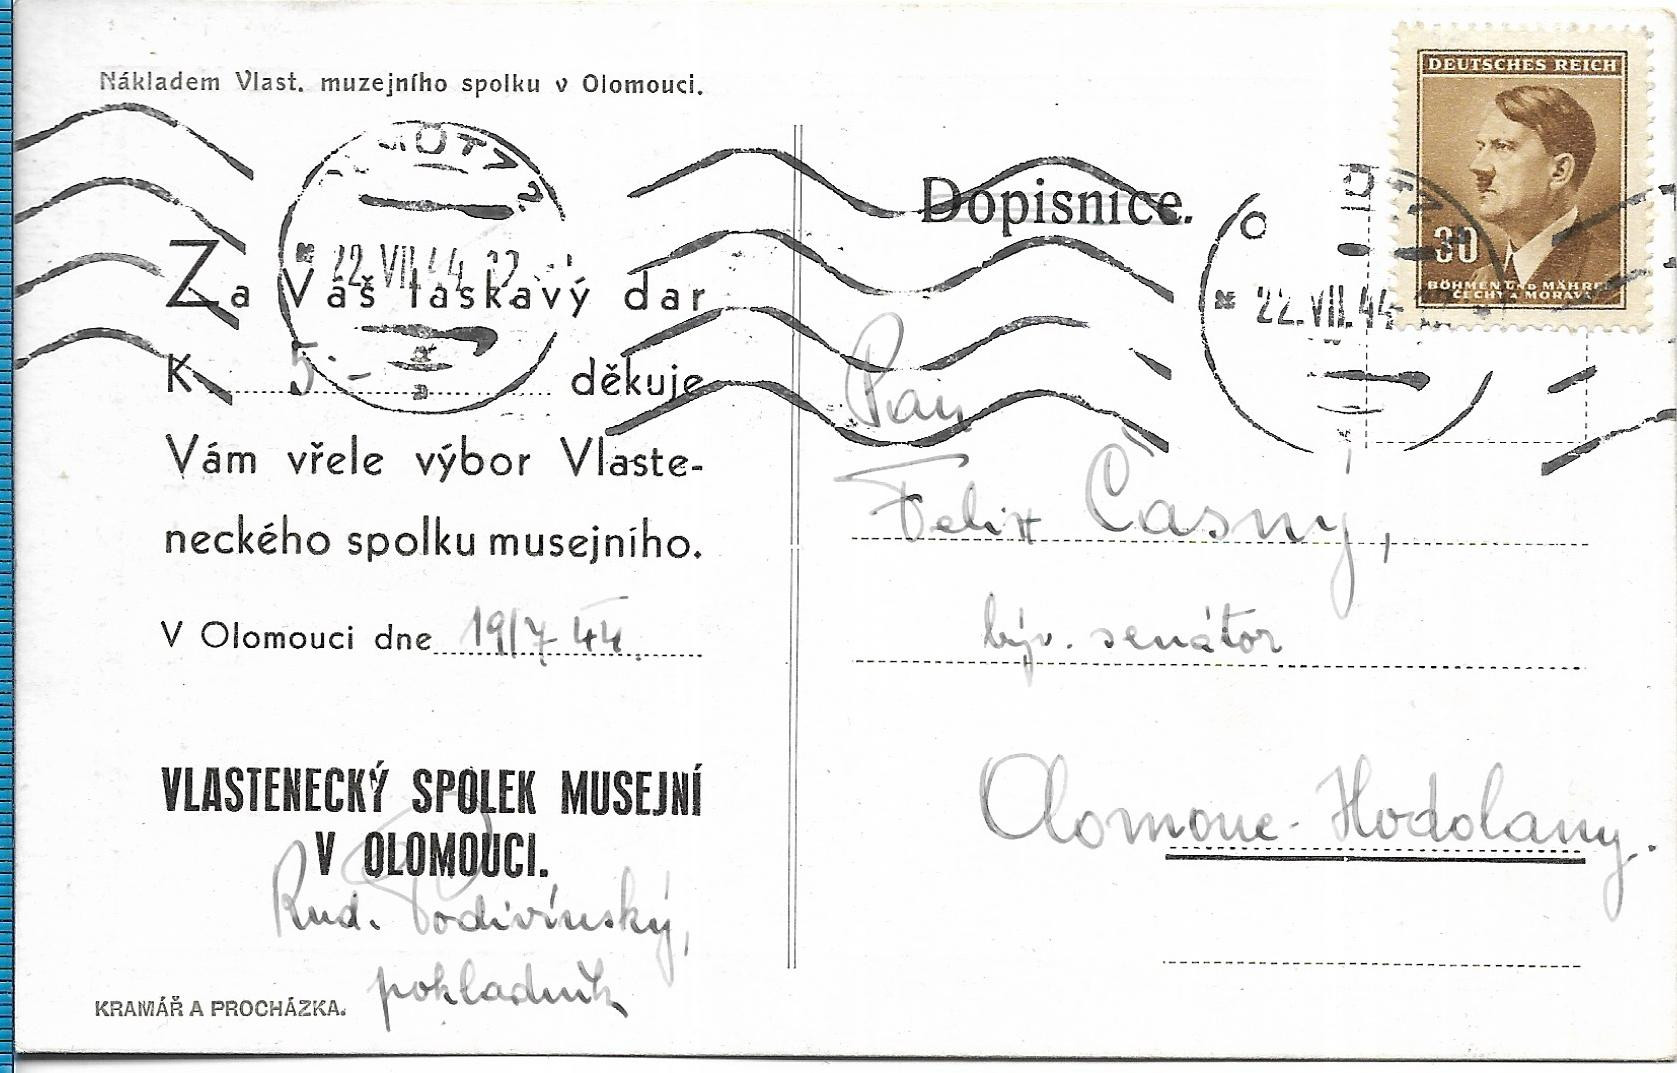 Nákladem Vlast. muzejního spolku v Olomouci.
Za Váš laskavý dar
K 5.– děkuje
Vám vřele výbor Vlaste-
neckého spolku musejního.
V Olomouci dne 19/7 44.
VLASTENECKÝ SPOLEK MUSEJNÍ
V OLOMOUCI.
Rud. Podivínský,
pokladník
KRAMÁŘ A PROCHÁZKA.
22.VII.44
Dopisnice.
22.VII.44
DEUTSCHES REICH
30
BÖHMEN UND MÄHREN
ČECHY A MORAVA
Pan
Felix Časný,
býv. senátor
Olomouc-Hodolany.